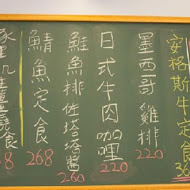 安格斯牛定食
墨西哥雞排 220
日式牛肉咖哩 220
鮭魚排佐塔塔醬 260
鯖魚定食 268